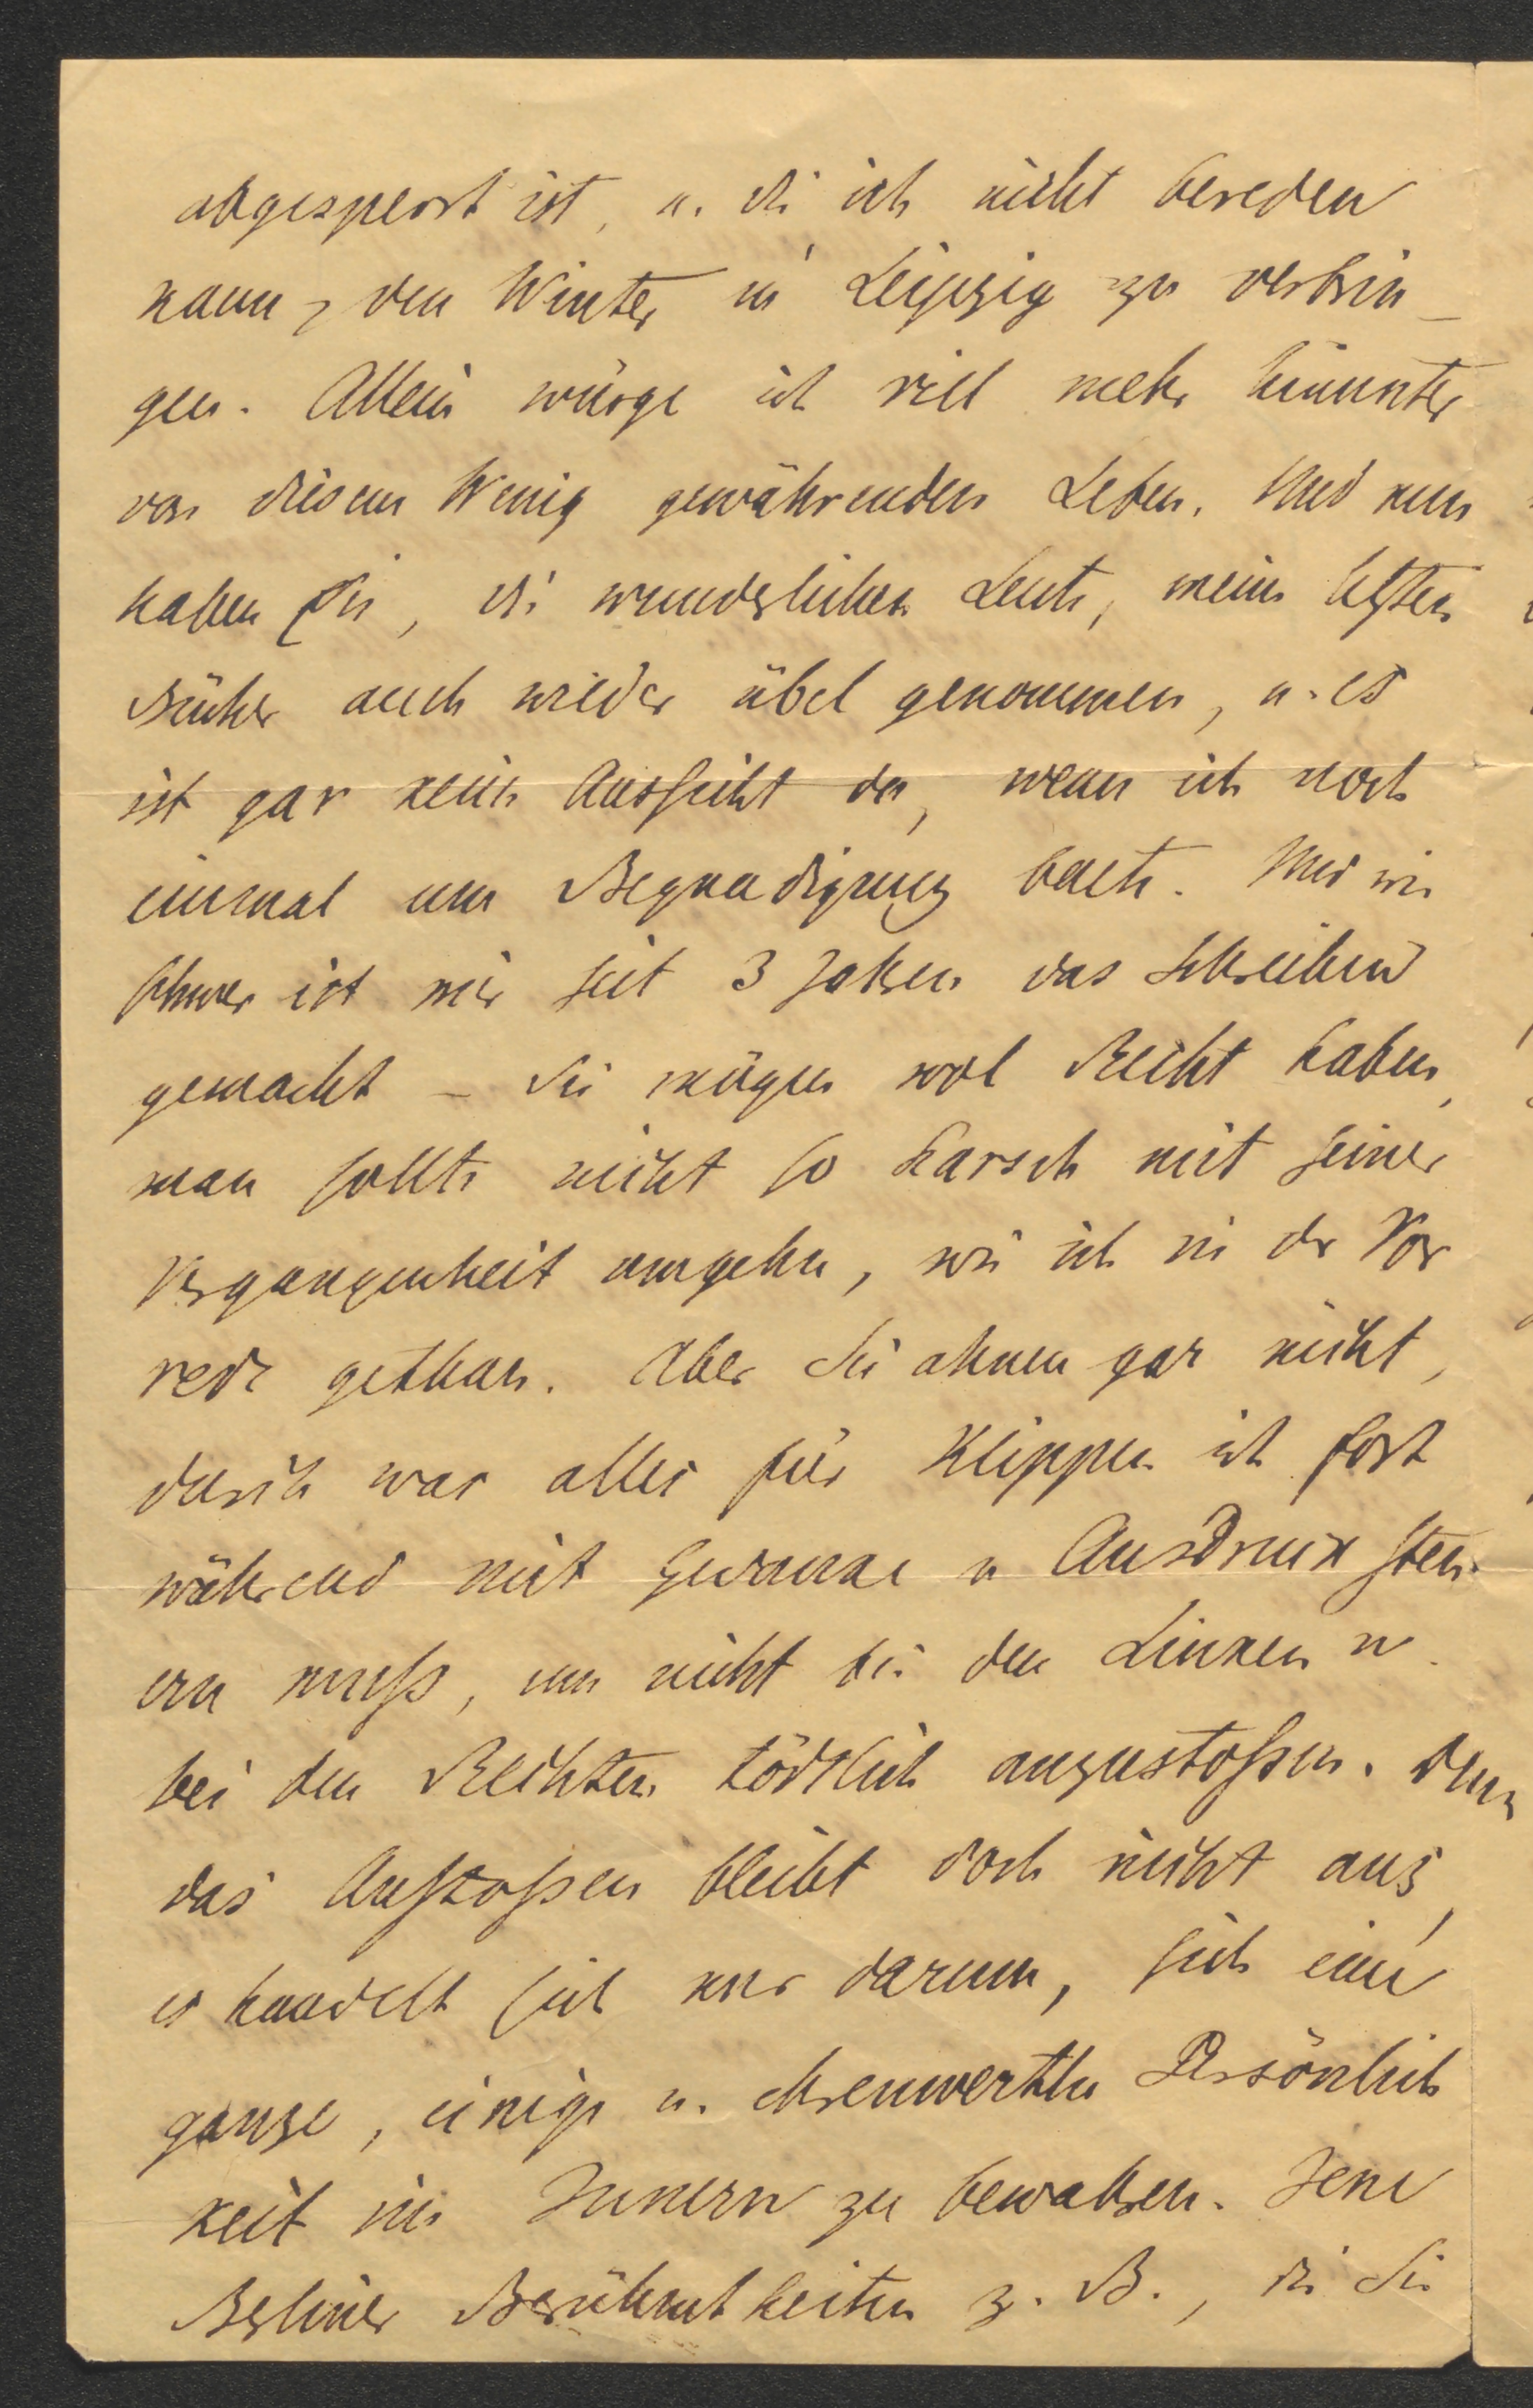 abgesperrt ist, u. die ich nicht bereden
kann, den Winter in Leipzig zu verbrin-
gen. Allein würge ich viel mehr hinunter
von diesem Wenig gewährenden Leben. Und nun
haben sie, die wunderlichen Leute, meine letzten
Bücher auch wieder übel genommen, u. es
ist gar keine Aussicht da, wenn ich noch
einmal um Begnadigung bäte. Und wie
schwer ist mir seit 3 Jahren das Schreiben
gemacht – Sie mögen wol Recht haben,
man sollte nicht so harsch mit seiner
Vergangenheit umgehn, wie ich in der Vor
rede gethan. Aber Sie ahnen gar nicht,
durch was alles für Klippen ich fort
während mit Gedanke u Ausdruck steu-
ern muß, um nicht bei den Linken u.
bei den Rechten tödtlich anzustoßen. Denn
das Anstoßen bleibt doch nicht aus,
es handelt sich nur darum, sich eine
ganze, einige u. ehrenwerthe Persönlich
keit im Innern zu bewahren. Jene
Berliner Berühmtheiten z. B., die Sie